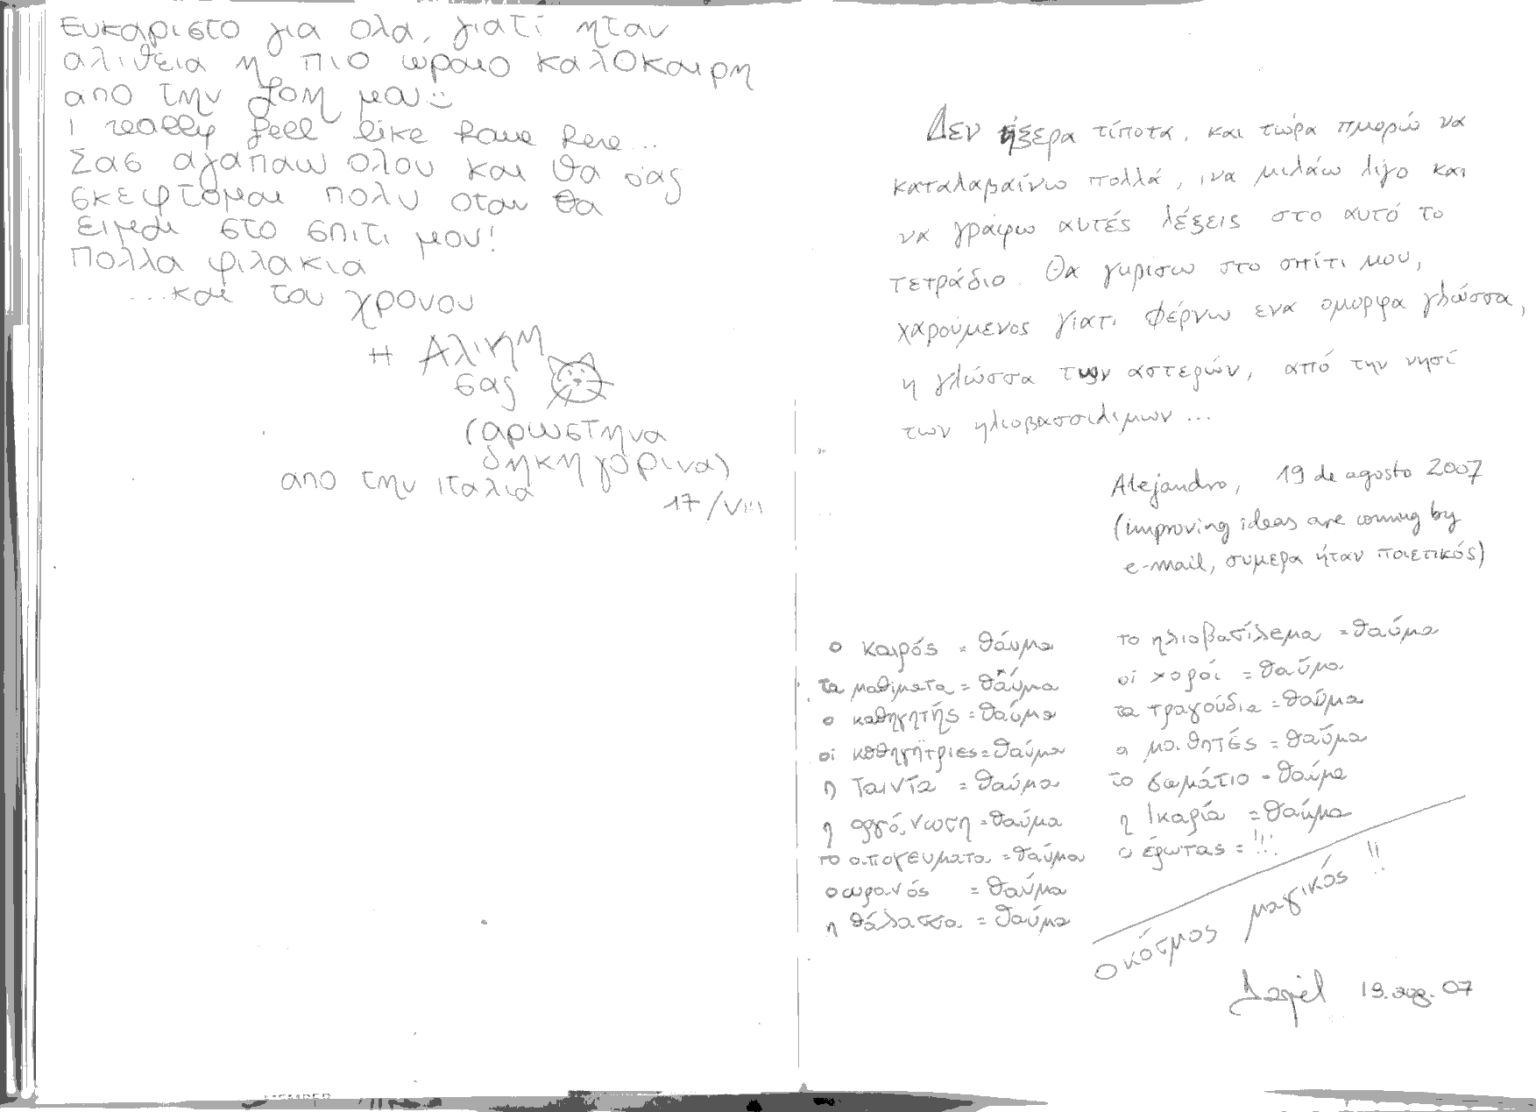 ευκαριστο για ολα, γιατί ηταν
αλιθεια η πιο ωραιο καλοκαιρη
απο την ζοη μου
I really feel like home here...
Σας αγαπαω ολου και θα σας
σκεφτομαι πολυ οταν θα
ειμαι στο σπιτι μου!
Πολλα φιλακια
...και του χρονου
Η Αλικη
σας
(αρωστηνα
δηκηγορινα)
απο την ιταλια
17/VIII
Δεν ήξερα τίποτα, και τώρα πμορώ να
καταλαβαίνω πολλά, ινα μιλάω λίγο και
να γράφω αυτές λέξεις στο αυτό το
τετράδιο. Θα γυρίσω στο σπίτι μου,
χαρούμενος γιατι φέρνω ενα ομορφα γλώσσα,
η γλώσσα των αστερών, από την νησί
των ηλιοβασσιλιμων ...
Alejandro, 19 de agosto 2007
(improving ideas are coming by
e-mail, συμερα ήταν ποιετικός)
ο καιρός = θάυμα
τα μαθιματα = θαύμα
ο καθηγητής = θαύμα
οι καθηγήτριες = θαύμα
η ταινία = θαύμα
η οργάνωση = θαύμα
το απογευματα = θαύμα
ο ωρανός = θαύμα
η θάλασσα = θαύμα
το ηλιοβασίλεμα = θαύμα
οι χοροί = θαύμα
τα τραγούδια = θαύμα
ο μαθητές = θαύμα
το δωμάτιο = θαύμα
η Ικαρία = θαύμα
ο έρωτας = !!!
Ο κόσμος μαγικός !!
19. αυγ. 07